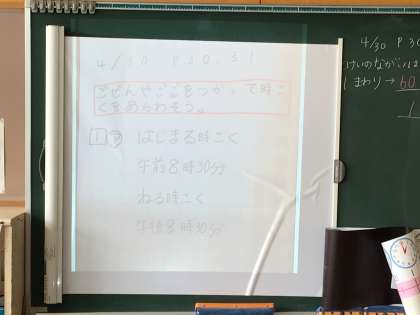 4/30 P30.31
ごぜんやごごをつかって時こ
くをあらわそう。
1 はじまる時こく
午前8時30分
ねる時こく
午後8時30分
4/30 P30
けいのながい
まわり→60